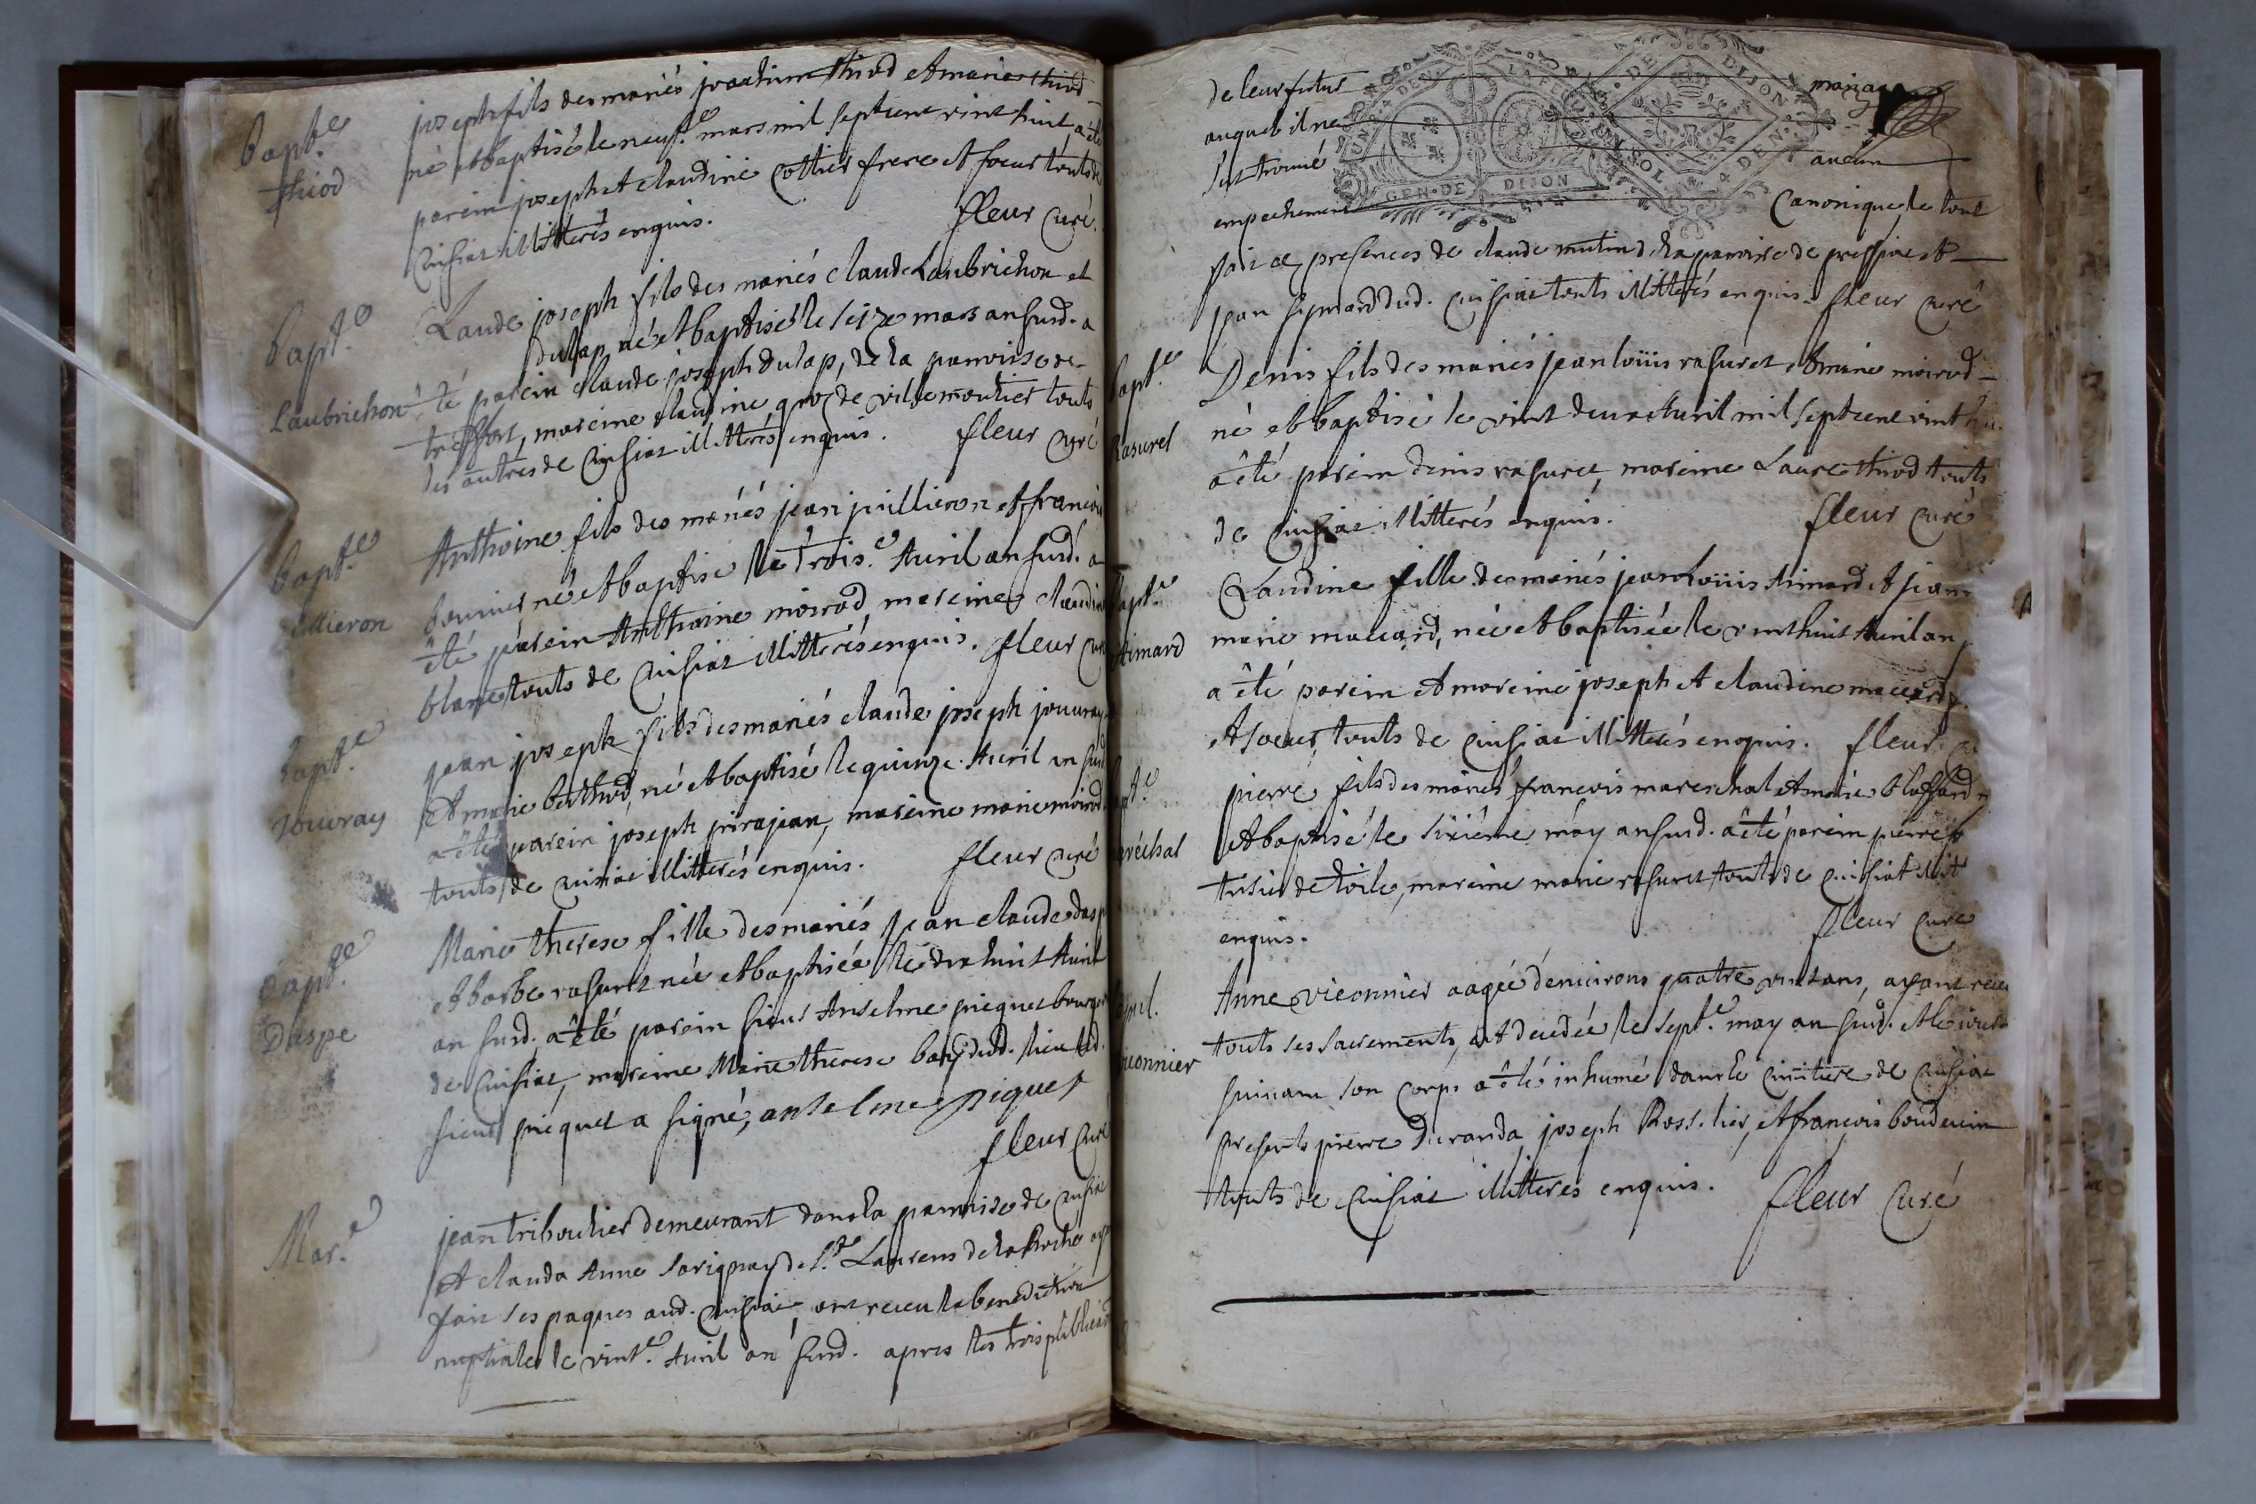 Bapt.e
thiod
joseph fils des mariés joachim thiod et marie thiod
né et baptisé le neuf.e mars mil sept cent vint huit a été
parein joseph et claudine cottier frere et soeur touts de
Cuisiat illitterés enquis. fleur curé.
Bapt.e
Laubrichon
Claude joseph fils des mariés claude Laubrichon et
dulap né et baptisé le seize mars an susd. a
été parein claude joseph dulap, de la parroisse de
treffort, mareine claudine groz de villemoutier touts
les autres de Cuisiat illitterés enquis. fleur curé
Bapt.e
Anthoine fils des mariés jean juillieron et françoi
bouvier né et baptisé le trois.e Avril an susd. a
été parein Anthoine moirod, mareine claudin
blanc touts de Cuisiat illitterés enquis. fleur cu
Bapt.e
jouvray
jean joseph fils des mariés claude joseph jouvray
et marie berthod, né et baptisé le quinze Avril an susd
a été parein joseph pirajean, mareine marie moirod
touts de Cuisiat illitterés enquis. fleur curé
Bapt.e
Daspe
Marie therese fille des mariés jean claude dasp
et barbe rasuret née et baptisée le dix huit Avril
an susd. a été parein sieur Anselme piquet bourge
de Cuisiat, mareine Marie therese bary dud. lieu led.
sieur piquet a signé, anselme piquet
fleur curé
Mar.e
jean triboulier demeurant dans la parroisse de cuisiat
et clauda Anne sarignay de s.t Laurens de la Roche aya
fait ses paques aud. Cuisiat, ont receu la benediction
nuptiale le vint.e Avril an susd. apres les trois publicao
de leur futur mariage
auquel il ne
s'est trouvé aucun
empechement
Canonique, le tout
fait es presences de claude mutin de la parroise de pressiat et
jean symard dud. Cuisiat touts illitterés enquis. fleur curé
Bapt.e
Rasurel
Denis fils des mariés jean loüis rasuret et marie moirod
né et baptisé le vint deux Avril mil sept cent vint hui
a été parein denis rasuret, mareine Laure thiod touts
de Cuisiat illitterés enquis. fleur curé
Bapt.e
Aimard
Claudine fille des mariés jean loüis Aimard et jean
marie maccard, née et baptisée le vint huit Avril an
a été parein et mareine joseph et claudine maccard f.
et soeur, touts de cuisiat illitterés enquis. fleur cu
pt.e
aréchal
pierre fils des mariés françois mareschal et marie bloffard n
et baptisé le sixiéme may an susd. a été parein pierre b
tisier de toile, mareine marie rasuret touts de cuisiat illit
enquis. fleur curé
ionnier
Anne vieonnier aagée d'environs quatre vint ans, ayant receu
touts ses sacrements, est decedée le sept.e may an susd. et le jour
suivant son corps a été inhumé dans le cimitiere de cuisiat
presents pierre duranda joseph Rosselier, et françois bouduin
touts de Cuisiat illitterés enquis. fleur Curé
GEN·DE DIJON
DE DIJON